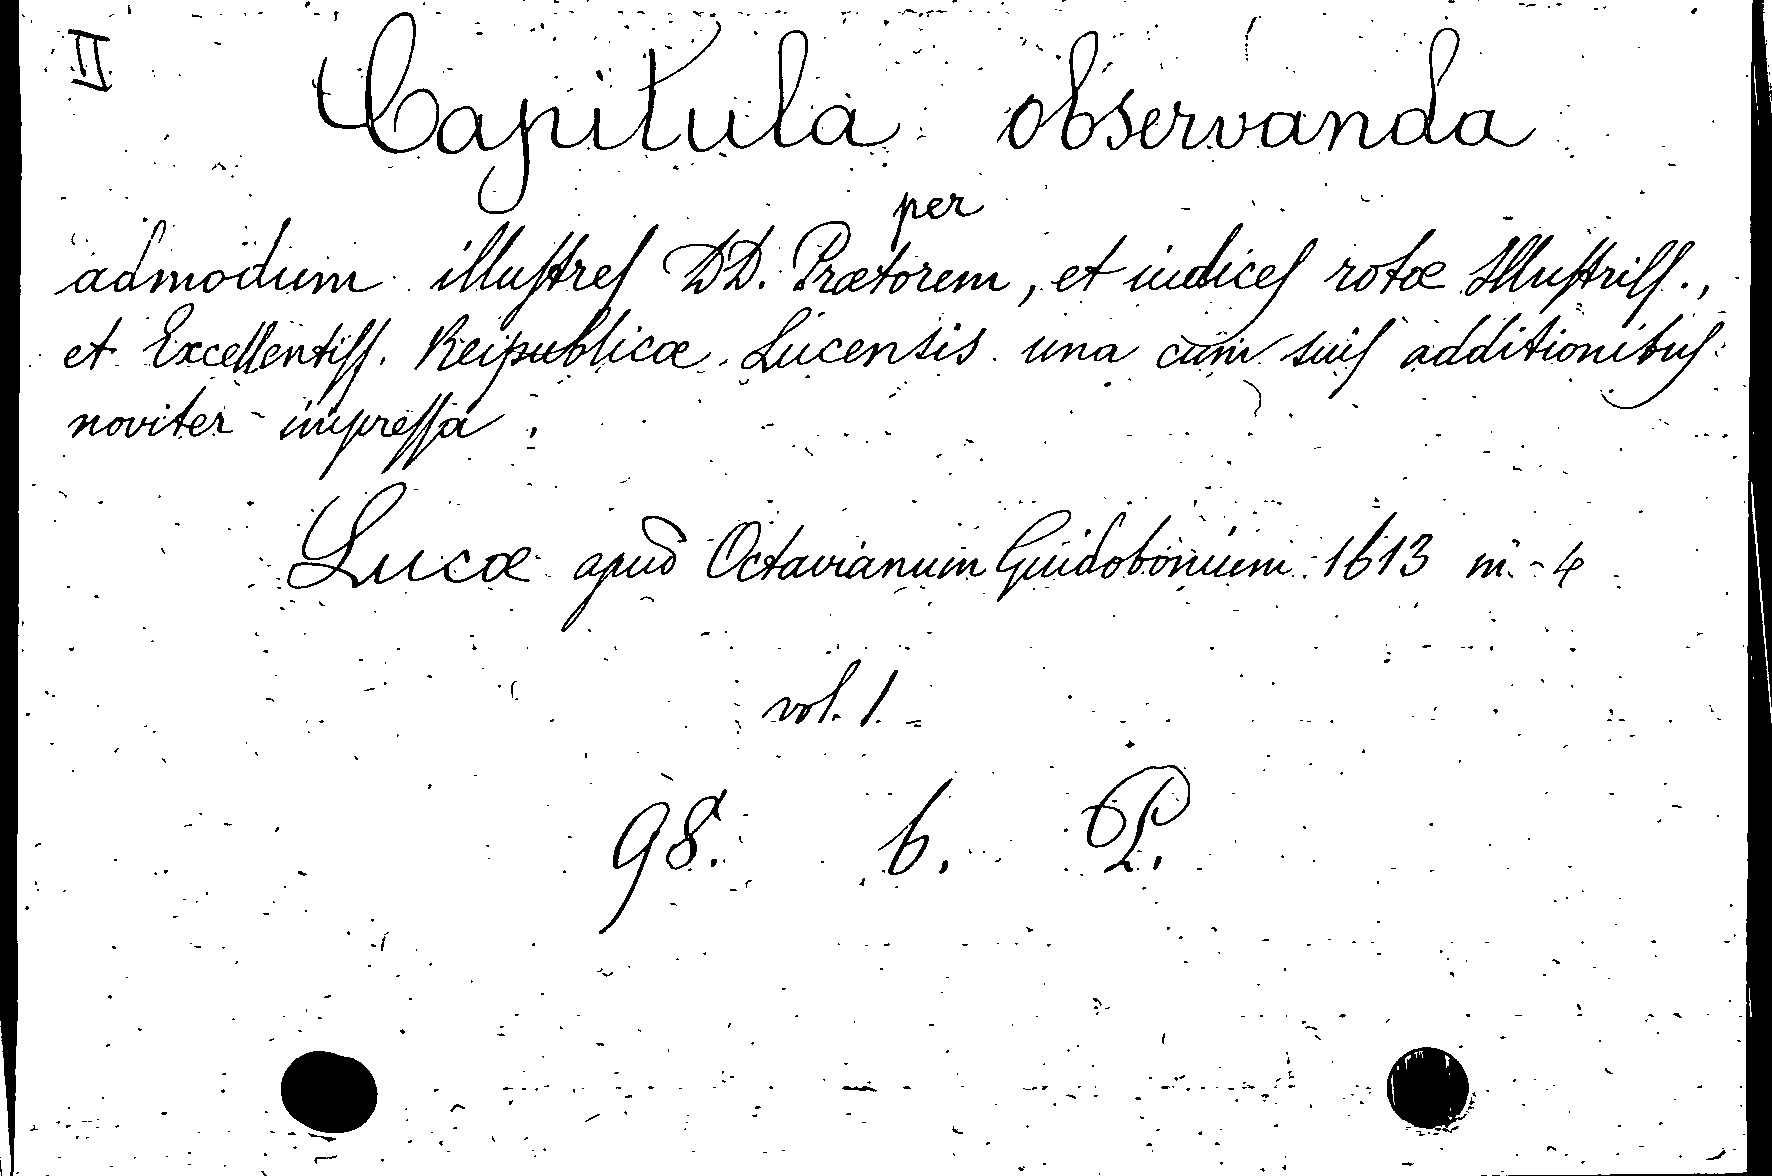 II
Capitula observanda
per
admodum illuſtreſ DD. Prætorem, et iudiceſ rotæ Illuſtriſſ.,
et Excellentiſſ. Reipublicæ Lucensis una cum suiſ additionibuſ
noviter impreſſa.
Lucæ apud Octavianum Guidobonium 1613 in-4
vol. 1.
98. b. P.